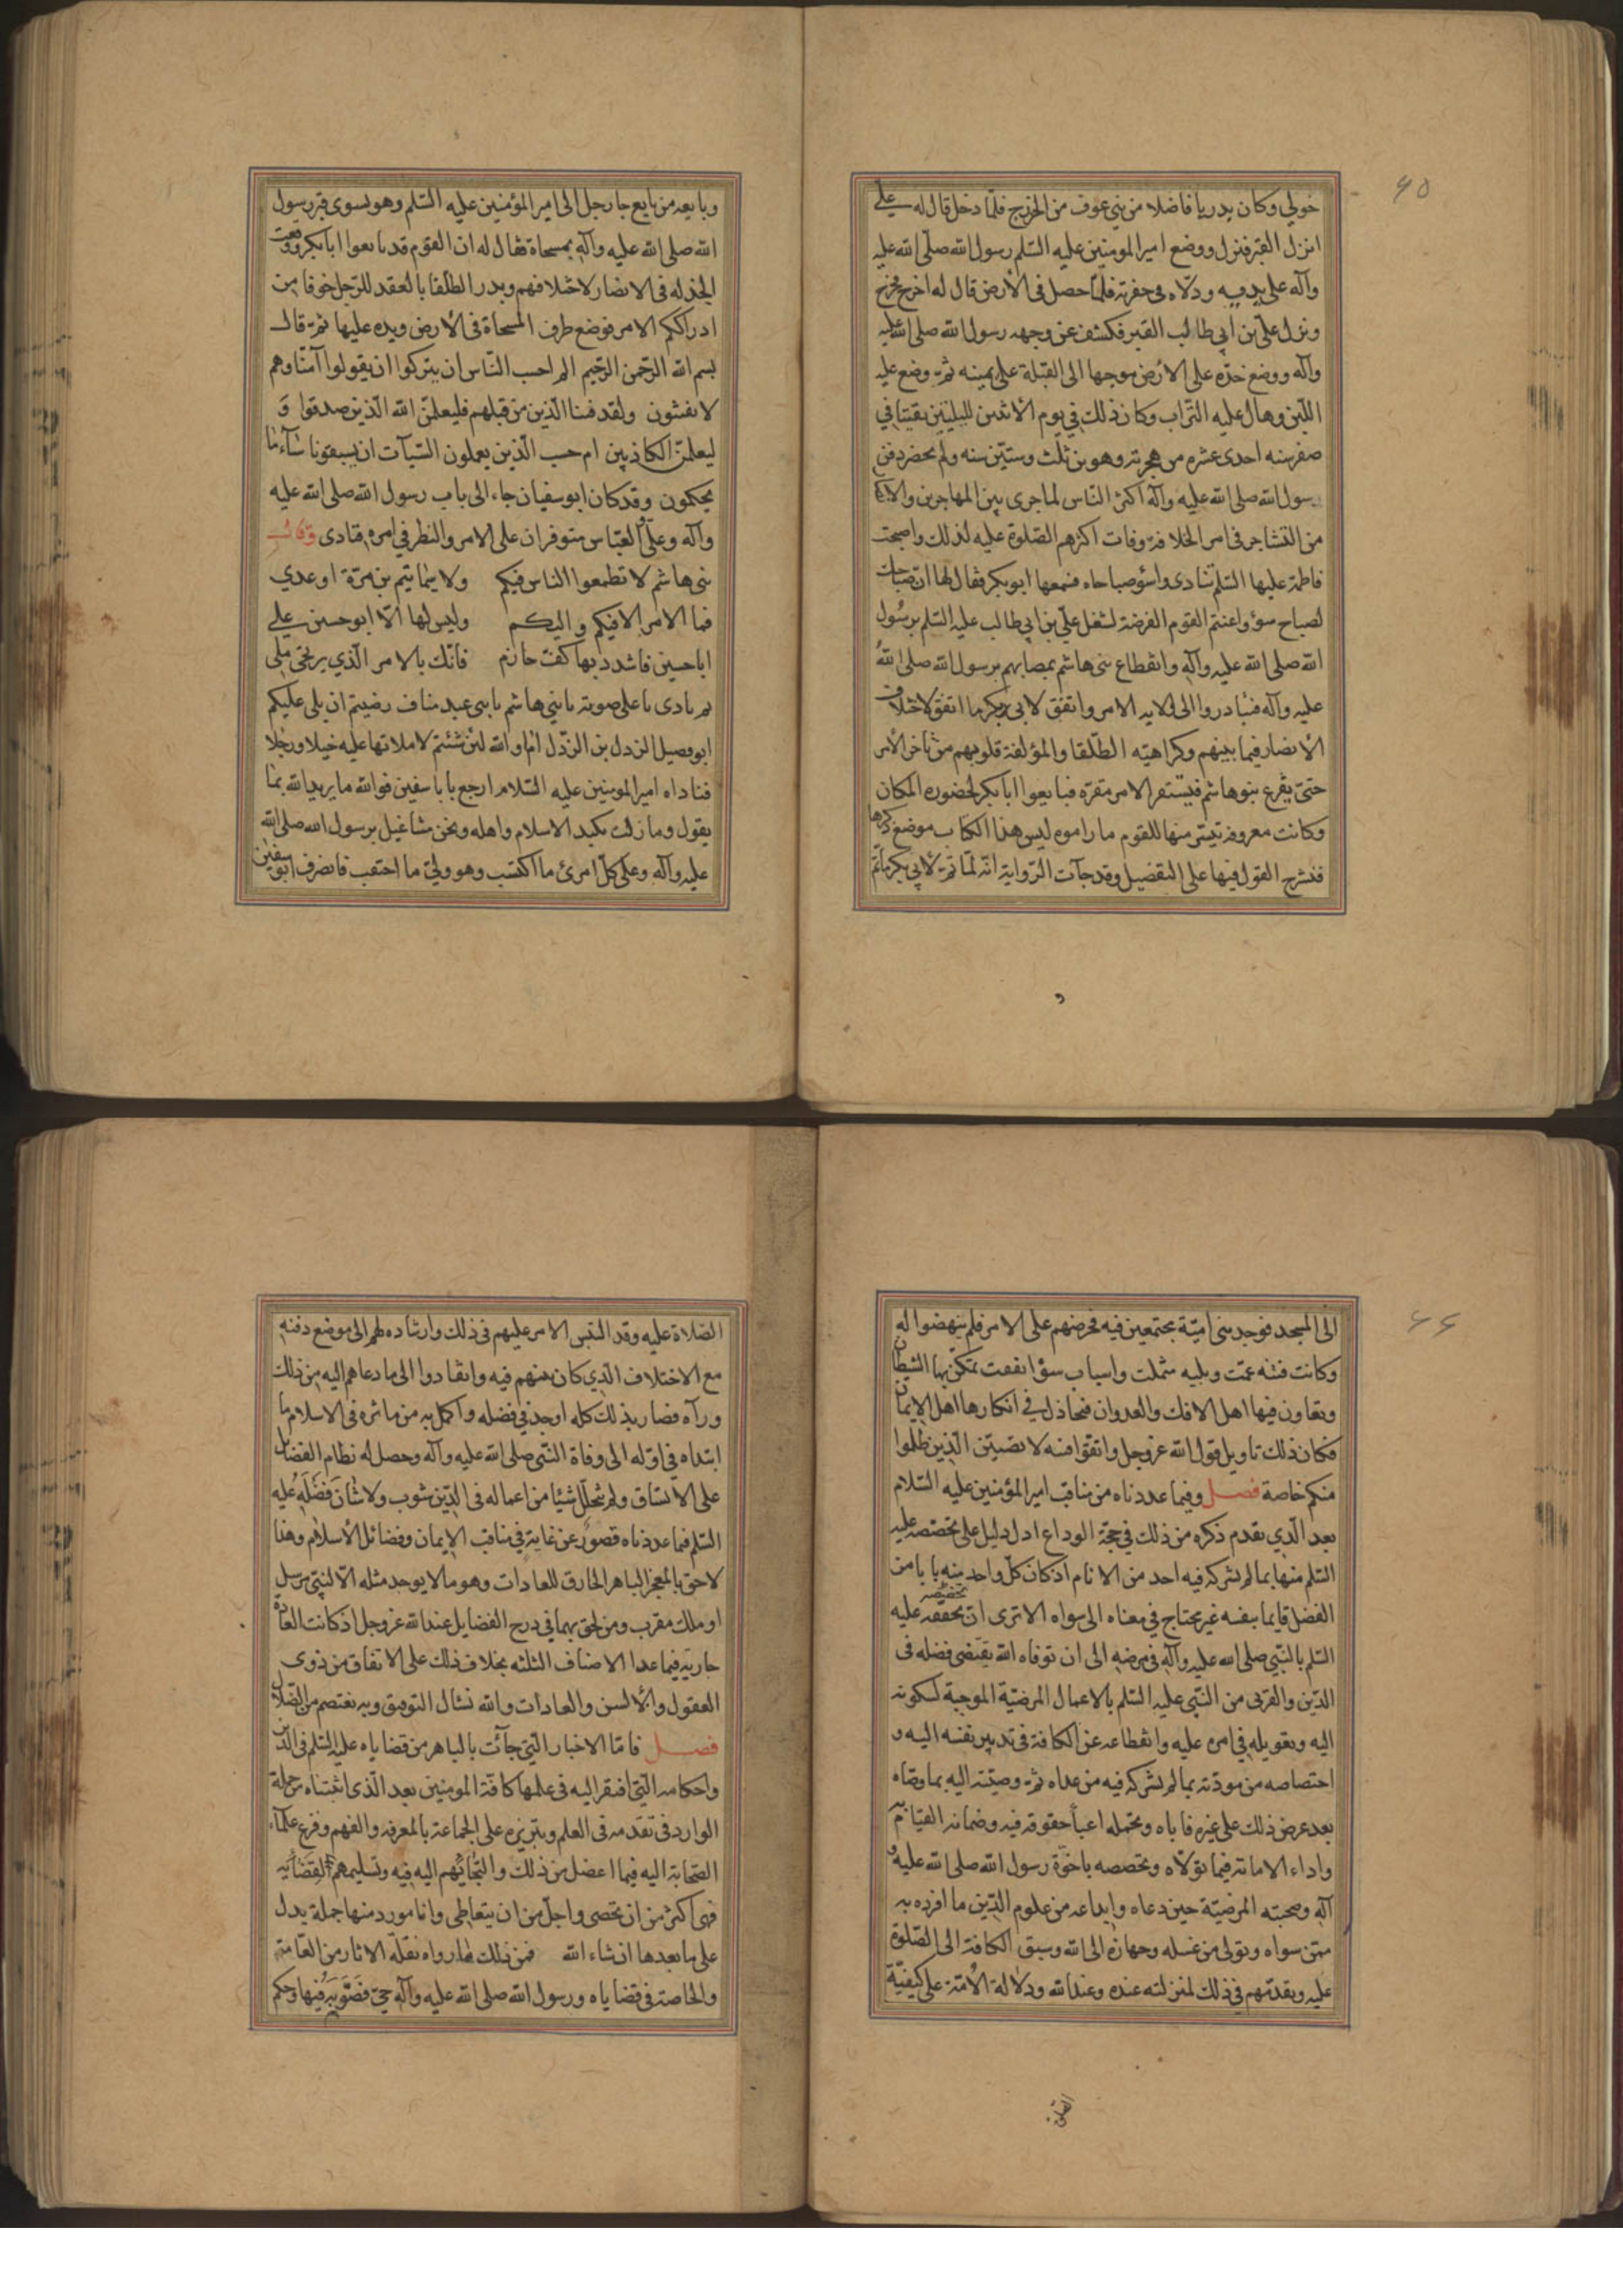 ٦٥
خولي وكان بدريا فاضلا من بني عوف من الخزرج فلما دخل قال له علي
انزل القبر فنزل ووضع امير المومنين عليه السلم رسول الله صلى الله عليه
وآله على يديه ودلاه في حفرته فلما حصل في الأرض قال له اخرج فخرج
ونزل علي بن أبي طالب القبر فكشف عن وجهه رسول الله صلى الله عليه
وآله ووضع خده على الأرض موجها الى القبلة على يمينه ثم وضع عليه
اللبن وهال عليه التراب وكان ذلك في يوم الأثنين لليلتين بقيتا في
صفر سنه احدى عشره من هجرته وهو بن ثلث وستين سنه ولم يحضر دفن
رسول الله صلى الله عليه وآله اكثر الناس لما جرى بين المهاجرين والانصار
من التشاجر في امر الخلافة وفات اكثرهم الصلوة عليه لذلك واصبحت
فاطمة عليها السلم تنادى واسؤ صباحاه فسمعها ابو بكر فقال لها ان صباحك
لصباح سؤ واغتنم القوم الفرصة لشغل علي بن ابي طالب عليه السلم برسول
الله صلى الله عليه وآله وانقطاع بنى هاشم بمصابهم برسول الله صلى الله
عليه وآله فتبادروا الى الولاية الامر واتفق لابي بكر ما اتفق لاختلاف
الأنصار فيما بينهم وكراهيته الطلقا والمؤلفة قلوبهم من تاخر الأمر
حتى يفرغ بنو هاشم فيستقر الامر مقره فبايعوا ابا بكر لحضوره المكان
وكانت معروفة تيسر منها للقوم ما راموه ليس هذا الكتاب موضع ذكرها
فنشرح القول فيها على التفضيل وقد جآت الرواية انه لما تم لأبي بكر ما تم
وبايعه من بايع جا رجل الى امير المؤمنين عليه السلم وهو يسوى قبر رسول
الله صلى الله عليه وآله بمسحاة فقال له ان القوم قد بايعوا ابابكر ووقعت
الخذله في الانصار لاختلافهم وبدر الطلقا بالعقد للرجل خوفا من
ادراككم الامر فوضع طرف المسحاة في الأرض ويده عليها ثم قال
بسم الله الرحمن الرحيم الم احسب الناس ان يتركوا ان يقولوا آمنا وهم
لا يفتنون ولقد فتنا الذين من قبلهم فليعلمن الله الذين صدقوا و
ليعلمن الكاذبين ام حسب الذين يعملون السيآت ان يسبقونا ساء ما
يحكمون وقد كان ابو سفيان جاء الى باب رسول الله صلى الله عليه
وآله وعلي والعباس متوفران على الامر والنظر في امره فنادى وقال
بنى هاشم لا تطمعوا الناس فيكم ولا سيما تيم بن مرة اوعدي
فما الامر الا فيكم و اليكم وليس لها الا ابو حسن علي
اباحسين فاشدد بها كف حازم فانك بالامر الذي يرتجى ملى
ثم نادى باعلى صوته يا بني هاشم يا بنى عبد مناف رضيتم ان يلى عليكم
ابو فصيل الرذل بن الرذل اما والله لئن شئتم لاملاتها عليه خيلا ورجلا
فناداه امير المومنين عليه السلام ارجع يا با سفين فوالله ما يريد الله بما
يقول وما زلت تكيد الاسلام واهله ونحن مشاغيل برسول الله صلى الله
عليه وآله وعلى كل امرئ ما اكتسب وهو ولي ما احتقب فانصرف ابو سفين
٦٦
الى المسجد فوجد بنى امية مجتمعين فيه فحرضهم على الامر فلم ينهضوا له
وكانت فتنه عمت وبليه شملت واسباب سؤ اتفقت تمكن بها الشيطان
وتعاون فيها اهل الافك والعدوان فتخاذل في انكارها اهل الإيمان
فكان ذلك تاويل قول الله عز وجل واتقوا فتنه لا تصيبن الذين ظلموا
منكم خاصة فصل وفيما عددناه من مناقب امير المؤمنين عليه السلام
بعد الذي تقدم ذكره من ذلك في حجة الوداع ادل دليل على تخصصه عليه
السلم منها بما لم يشركه فيه احد من الانام اذ كان كل واحد منه بابا من
الفضل قايما بنفسه غير محتاج في معناه الى سواه الا ترى ان تحققه عليه
السلم بالنبي صلى الله عليه وآله في مرضه الى ان توفاه الله يقتضى فضله في
الدين والقربى من النبي عليه السلم بالاعمال المرضية الموجبة لسكونه
اليه وتعويله في امره عليه وانقطاعه عن الكافة في تدبير نفسه اليه و
اختصاصه من مودته بما لم يشركه فيه من عداه ثم وصيته اليه بما وصاه
بعد عرض ذلك على غيره فاباه وتحمله اعبأ حقوقه فيه وضمانه القيام به
واداء الامانة فيما تولاه وتخصصه باخوة رسول الله صلى الله عليه و
آله وصحبته المرضية حين دعاه وايداعه من علوم الدين ما افرده به
ممن سواه وتولى من غسله وجهازه الى الله وسبق الكافة الى الصلوة
عليه وتقدمهم في ذلك لمنزلته عنده وعند الله ودلالة الأمة على كيفية
الصلاة عليه وقد التبس الامر عليهم في ذلك وارشاده لهم الى موضع دفنه
مع الاختلاف الذي كان بينهم فيه وانقادوا الى ما دعاهم اليه من ذلك
ورآه فصار بذلك كله اوحد في فضله واكمل به من ماثره في الاسلام ما
ابتداه في اوله الى وفاة النبي صلى الله عليه وآله وحصل له نظام الفضايل
على الاتساق ولم يتخلل شيئا من اعماله في الدين شوب ولا شان فضله عليه
السلم فيما عددناه قصور عن غاية في مناقب الإيمان وفضائل الأسلام وهذا
لاحق بالمعجز الباهر الخارق للعادات وهو ما لا يوجد مثله الا لنبي مرسل
او ملك مقرب ومن لحق بهما في درج الفضايل عند الله عز وجل اذ كانت العادة
جارية فيما عدا الاصناف الثلثه بخلاف ذلك على الاتفاق من ذوى
العقول والألسن والعادات والله نسئال التوفيق وبه نعتصم من الضلال
فصل فاما الاخبار التي جآئت بالباهر من قضاياه عليه السلم في الدين
واحكامه التي افتقر اليه في علمها كافة المومنين بعد الذي اثبتناه من جملة
الوارد في تقدمه في العلم وتبريزه على الجماعة بالمعرفه والفهم وفزع علمآء
الصحابة اليه فيما اعضل من ذلك والتجائهم اليه فيه وتسليمهم القضآء به
فهى اكثر من ان تحصى واجل من ان يتعاطى وانا مورد منها جملة يدل
على ما بعدها ان شاء الله فمن ذلك ما رواه نقلة الاثار من العامة
والخاصة في قضاياه ورسول الله صلى الله عليه وآله حي فصوبه فيها وحكم